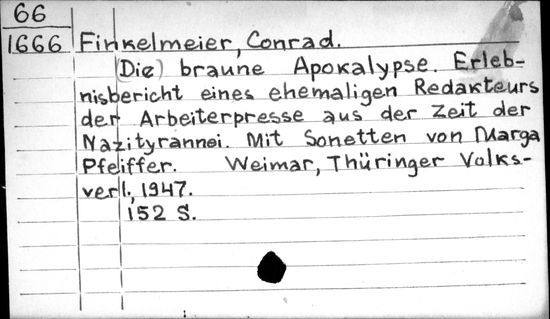 66
1666 Finkelmeier, Conrad.
(Die) braune Apokalypse. Erleb-
nisbericht eines ehemaligen Redakteurs
der Arbeiterpresse aus der Zeit der
Nazityrannei. Mit Sonetten von Marga
Pfeiffer. Weimar, Thüringer Volks-
verl., 1947.
152 S.